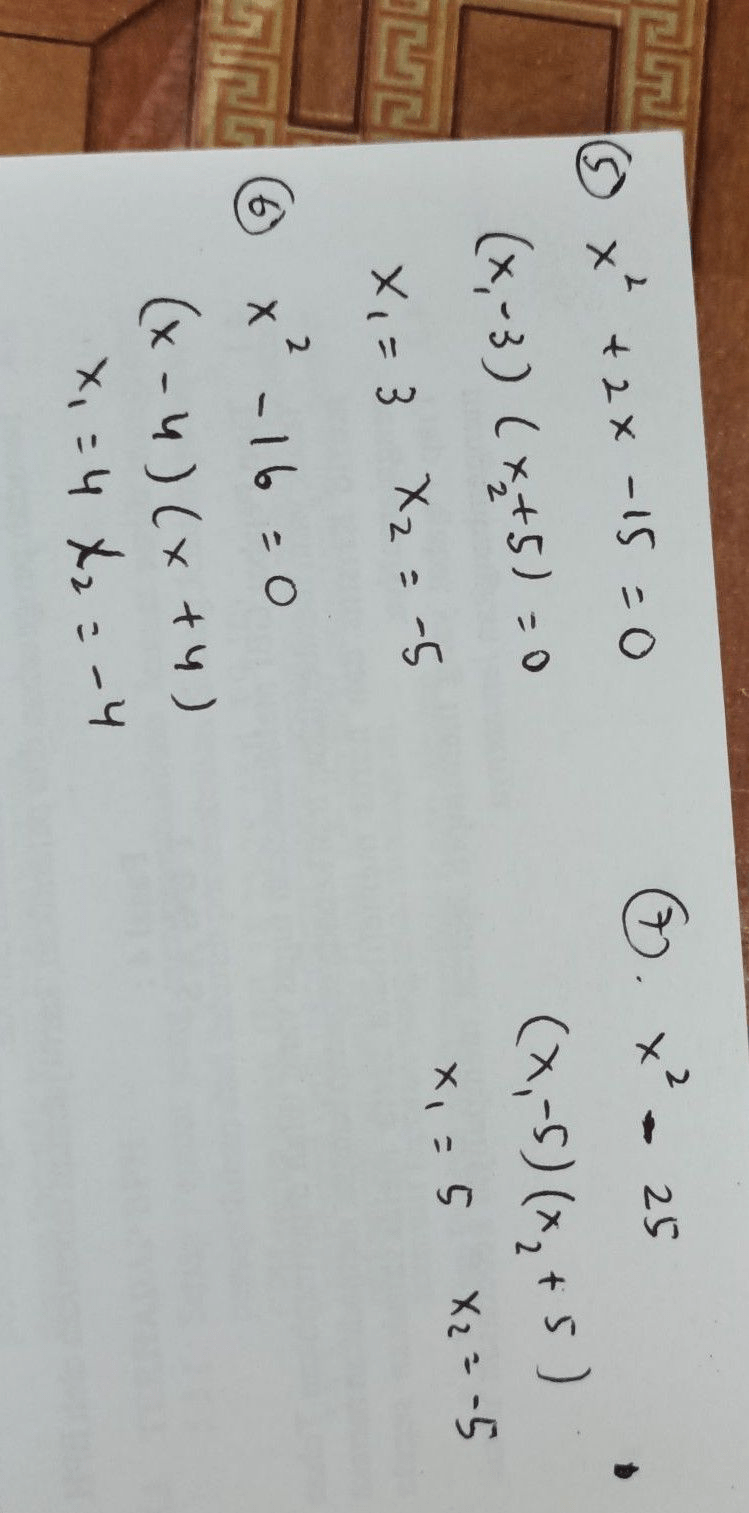 ⑤ x² + 2x - 15 = 0
(x₁ - 3) (x₂ + 5) = 0
x₁ = 3 x₂ = -5
⑥ x² - 16 = 0
(x - 4) (x + 4)
x₁ = 4 x₂ = -4
⑦. x² - 25
(x₁ - 5) (x₂ + 5)
x₁ = 5 x₂ = -5